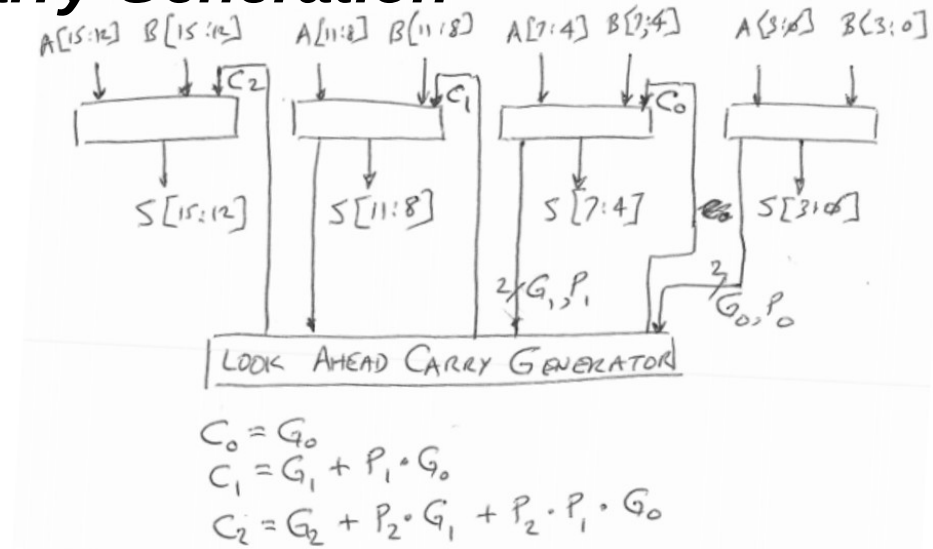 Carry Generation
A[15:12] B[15:12] A[11:8] B[11:8] A[7:4] B[7:4] A[3:0] B[3:0]
C2 C1 C0
S[15:12] S[11:8] S[7:4] S[3:0]
2 G1, P1 2 G0, P0
LOOK AHEAD CARRY GENERATOR
C0 = G0
C1 = G1 + P1 · G0
C2 = G2 + P2 · G1 + P2 · P1 · G0